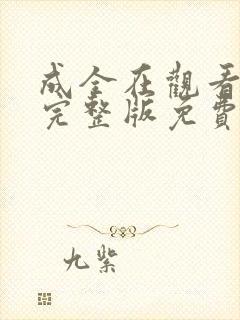 成全在觀看
完整版免費
九紫